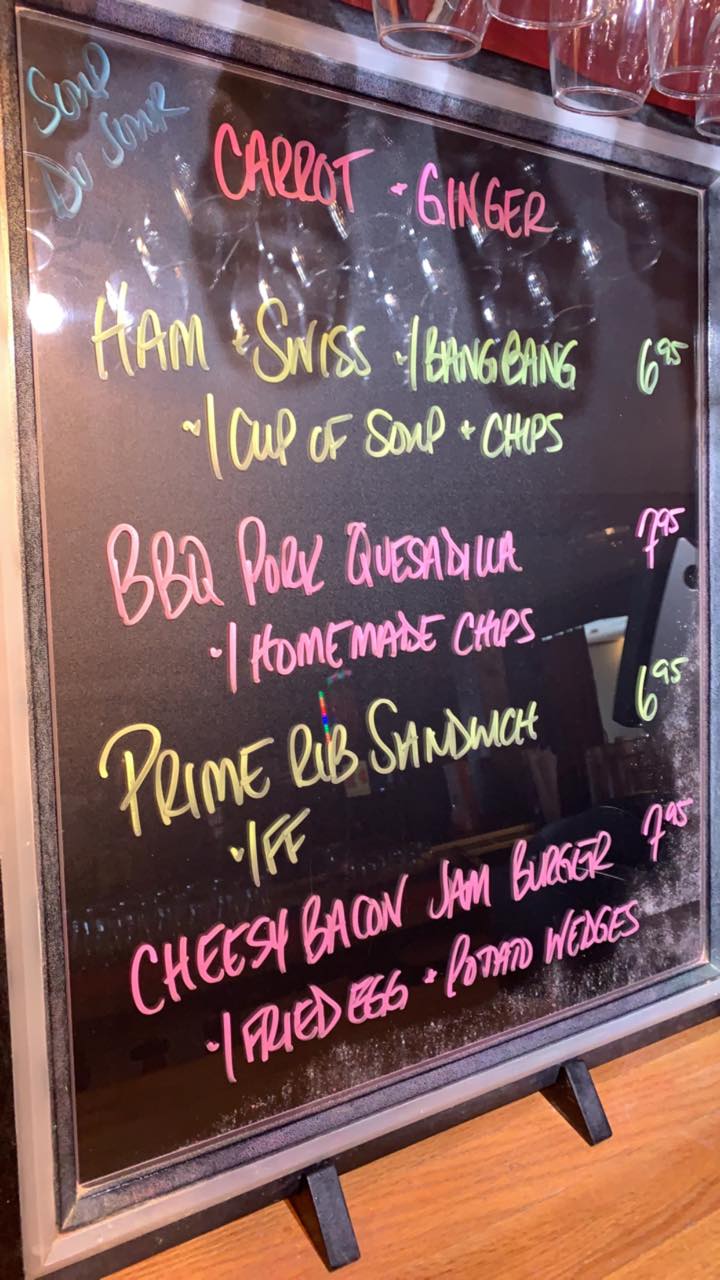 SOUP
DU JOUR
CARROT + GINGER
HAM + SWISS w/ BANG BANG 6.95
w/ CUP OF SOUP + CHIPS
BBQ PORK QUESADILLA 7.95
w/ HOMEMADE CHIPS
PRIME RIB SANDWICH 6.95
w/ FF
CHEESY BACON JAM BURGER 7.95
w/ FRIED EGG + POTATO WEDGES